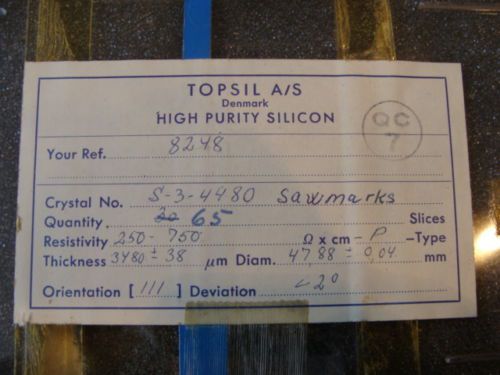 TOPSIL A/S
Denmark
HIGH PURITY SILICON
QC
7
Your Ref. 8248
Crystal No. S-3-4480 Sawmarks
Quantity 65 Slices
Resistivity 250 - 750 Ω x cm - P -Type
Thickness 3480 ± 38 μm Diam. 47.88 ± 0,04 mm
Orientation [111] Deviation < 2°